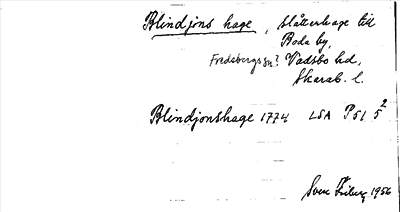 Blindjons hage, slåtterhage till
Boda by,
Fredsbergs sn? Vadsbo hd,
Skarab. l.
Blindjonshage 1774 LSA P51 5²
Sven Friberg 1956